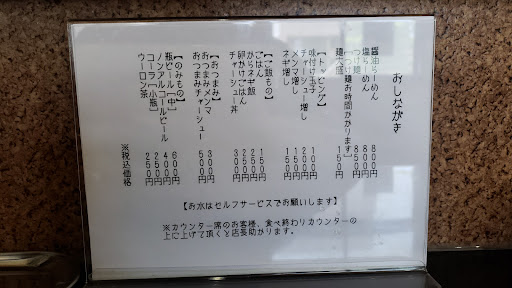 おしながき
醤油らーめん 800円
塩らーめん 800円
つけ麺 850円
[つけ麺お時間かかります]
麺大盛 150円
【トッピング】
味付け玉子 100円
チャーシュー増し 200円
メンマ増し 150円
ネギ増し 150円
【ご飯もの】
ごはん 150円
からネギ飯 250円
卵かけごはん 250円
チャーシュー丼 300円
【おつまみ】
おつまみメンマ 300円
おつまみチャーシュー 500円
【のみもの】
瓶ビール[中] 600円
ノンアルコールビール 400円
コーラ[小瓶] 250円
ウーロン茶
※税込価格
【お水はセルフサービスでお願いします】
※カウンター席のお客様、食べ終わりカウンターの
上に上げて頂くと店長助かります。